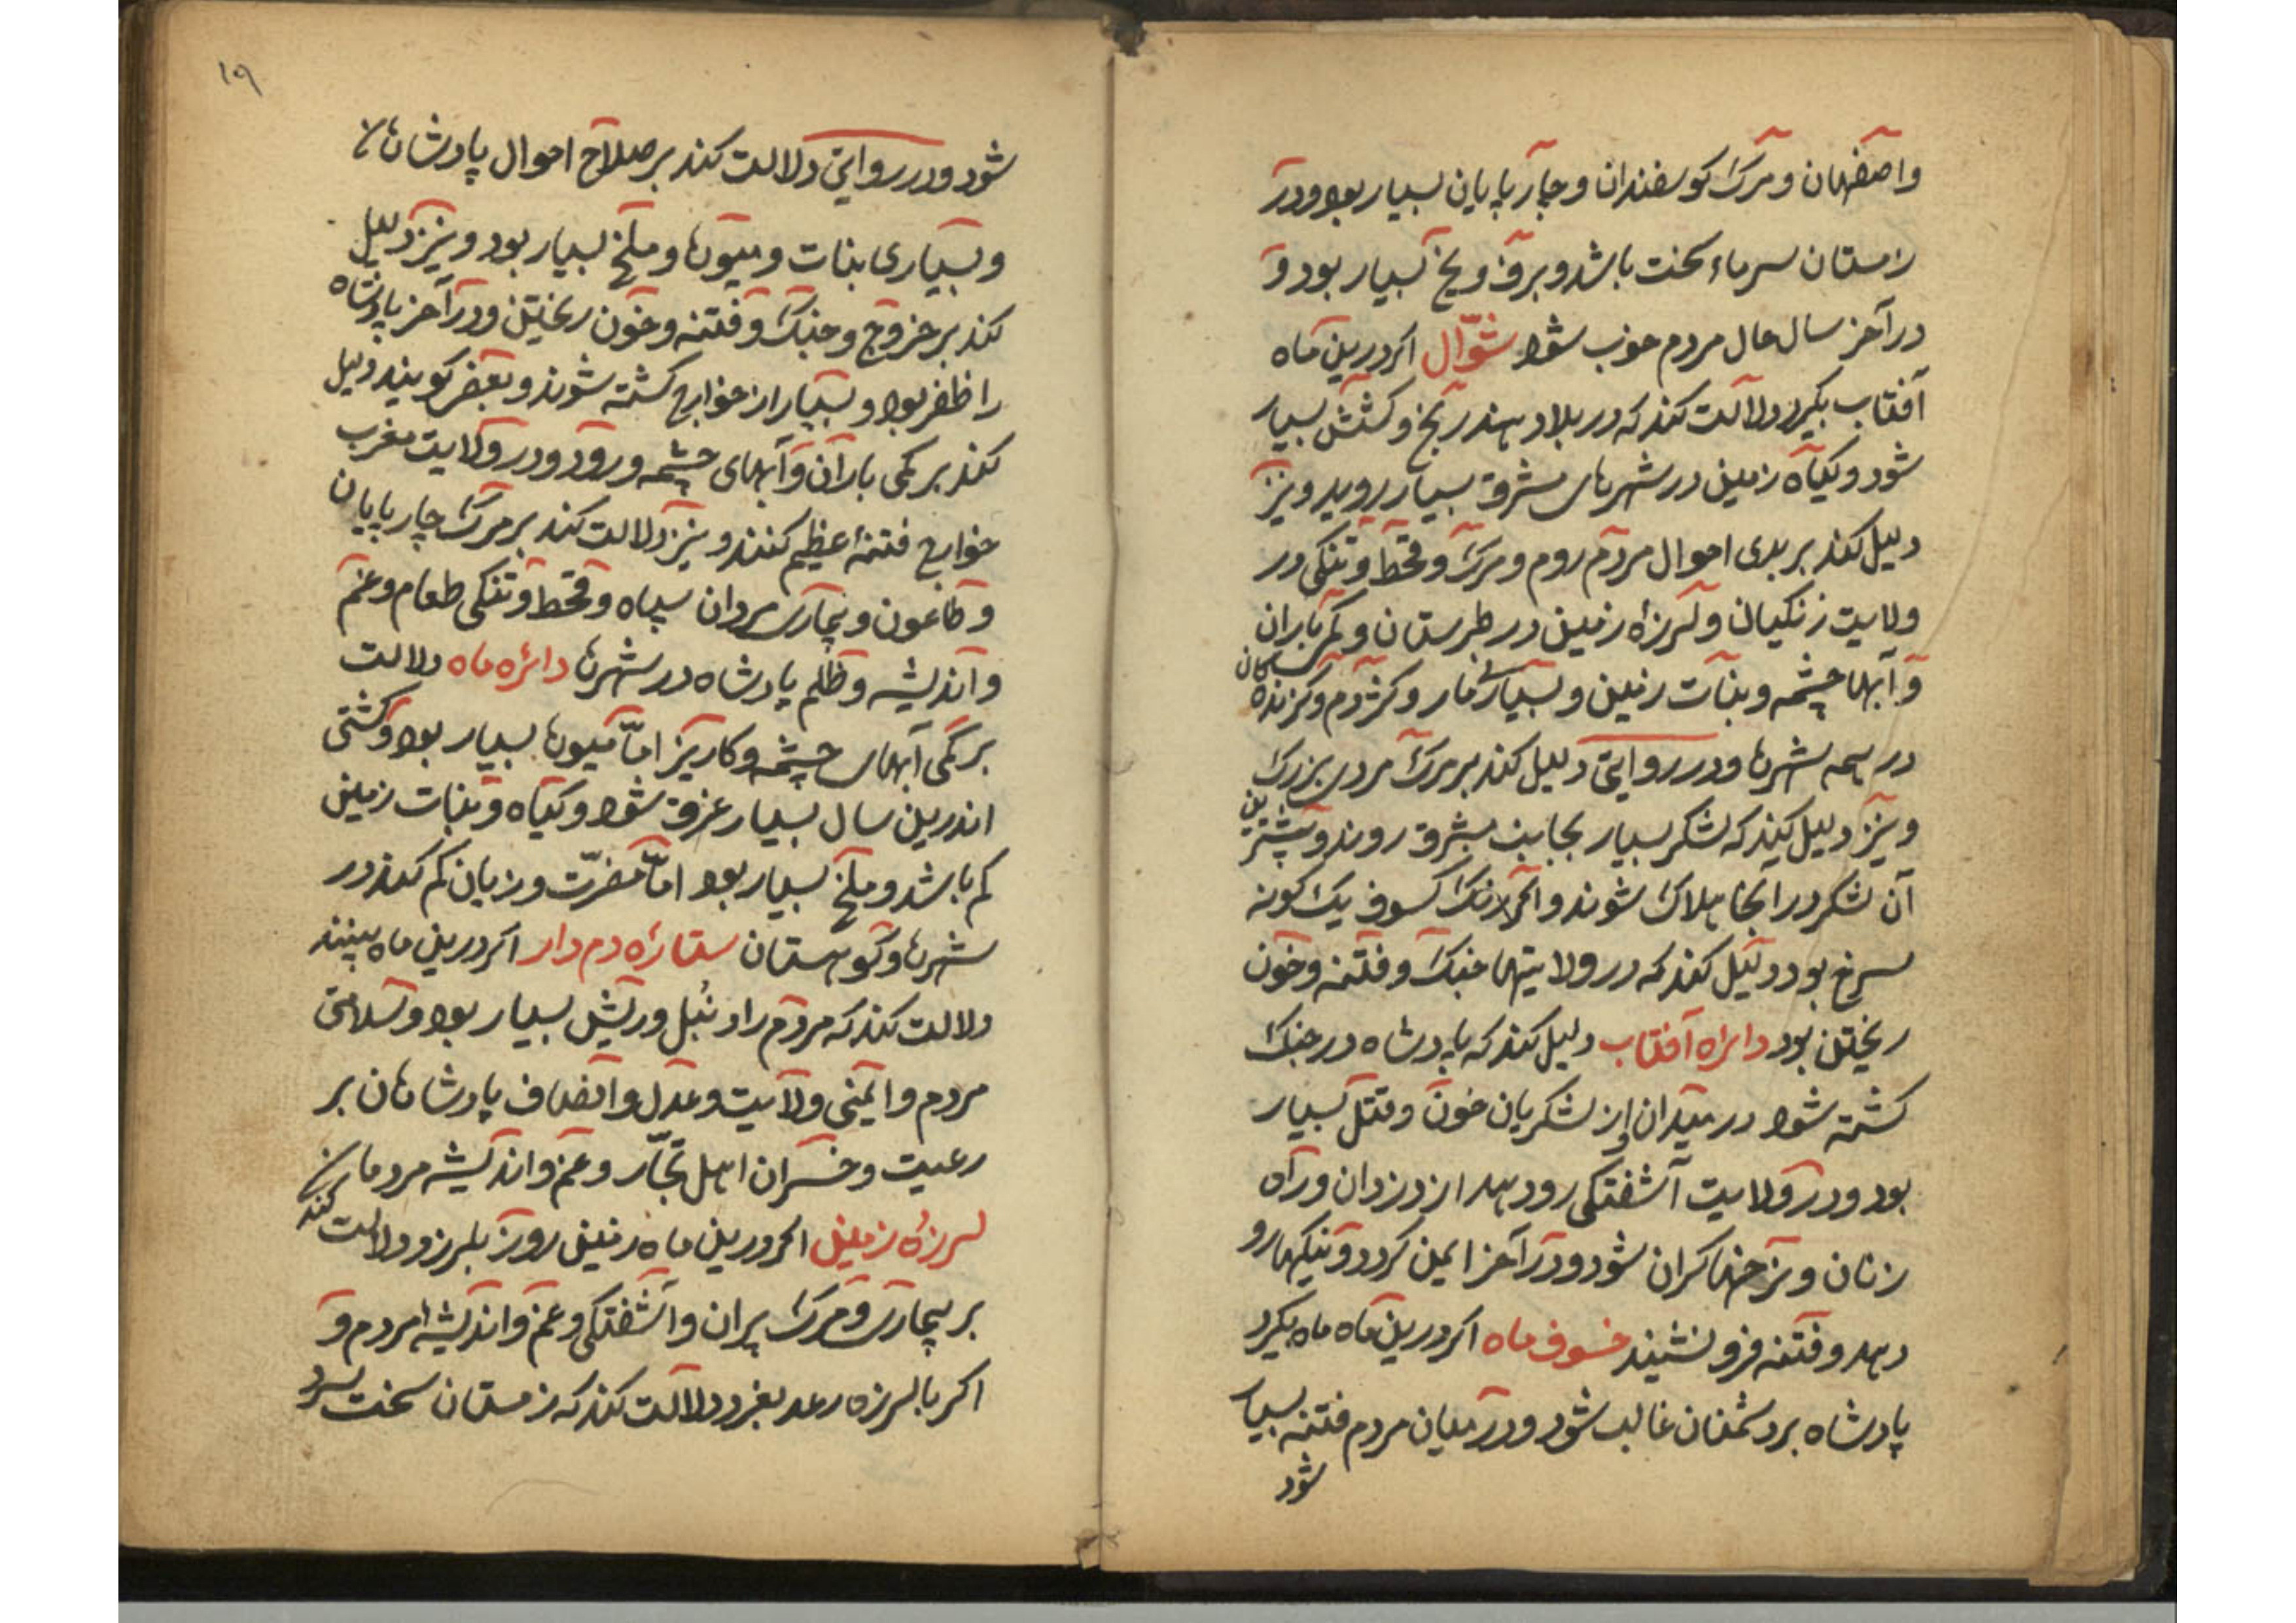 واصفهان ومرک کوسفندان وچارپایان بسیار بود ودر
زمستان سرماء سخت باشد وبرف ویخ بسیار بود و
در آخر سال حال مردم خوب شود شوّال اکر درین ماه
آفتاب بکیرد دلالت کند که در بلاد هند رنج وکشش بسیار
شود وکیاه زمین در شهرهای مشرق بسیار روید ونیز
دلیل کند بر بدی احوال مردم روم ومرک وقحط وتنکی در
ولایت زنکیان ولرزهٔ زمین در طبرستان وکمی باران
وآبها چشمه ونبات زمین وبسیاری مار وکژدم وکزندکان
در همه شهرها ودر روایتی دلیل کند بر مرک مردی بزرک
ونیز دلیل کند که لشکر بسیار بجانب مشرق روند وبیشترین
آن لشکر در آنجا هلاک شوند واکر رنک کسوف یک کونه
سرخ بود دلیل کند که در ولایتها جنک وفتنه وخون
ریختن بود دایرهٔ آفتاب دلیل کند که پادشاه در جنک
کشته شود در میدان از لشکریان خون وقتل بسیار
بود ودر ولایت آشفتکی رود هد از دزدان وراه
زنان ونرخها کران شود ودر آخر ایمن کردد ونیکیها رو
دهد وفتنه فرو نشیند خسوف ماه اکر درین ماه ماه بکیرد
پادشاه بر دشمنان غالب شود ودر میان مردم فتنه بسیار
شود
۱۹
شود ودر روایتی دلالت کند بر صلاح احوال پادشاهان
وبسیاری نبات ومیوها وملخ بسیار بود ونیز دلیل
کند بر خروج وجنک وفتنه وخون ریختن ودر آخر پادشاه
را ظفر بود وبسیار از خوارج کشته شوند وبعضی کویند دلیل
کند بر کمی باران وآبهای چشمه ورود ودر ولایت مغرب
خوارج فتنهٔ عظیم کنند ونیز دلالت کند بر مرک چارپایان
وطاعون وبیماری مردان سپاه وقحط وتنکی طعام وغم
واندیشه وظلم پادشاه در شهرها دائره ماه دلالت
بر کمی آبهای چشمه وکاریز امّا میوها بسیار بود وکشتی
اندرین سال بسیار غرق شود وکیاه ونبات زمین
کم باشد وملخ بسیار بود امّا مضرّت وزیان کم کند در
شهرها وکوهستان ستاره دم دار اکر درین ماه بینند
دلالت کند که مردم را دنبل وریش بسیار بود وسلامتی
مردم وایمنی ولایت وعدل وانصاف پادشاهان بر
رعیت وخسران اهل تجّار وغم واندیشه مردمان
لرزهٔ زمین اکر درین ماه زمین روز بلرزد دلالت کند
بر بیماری ومرک پیران وآشفتکی وغم واندیشهٔ مردم و
اکر با لرزه رعد بغرد دلالت کند که زمستان سخت سرد